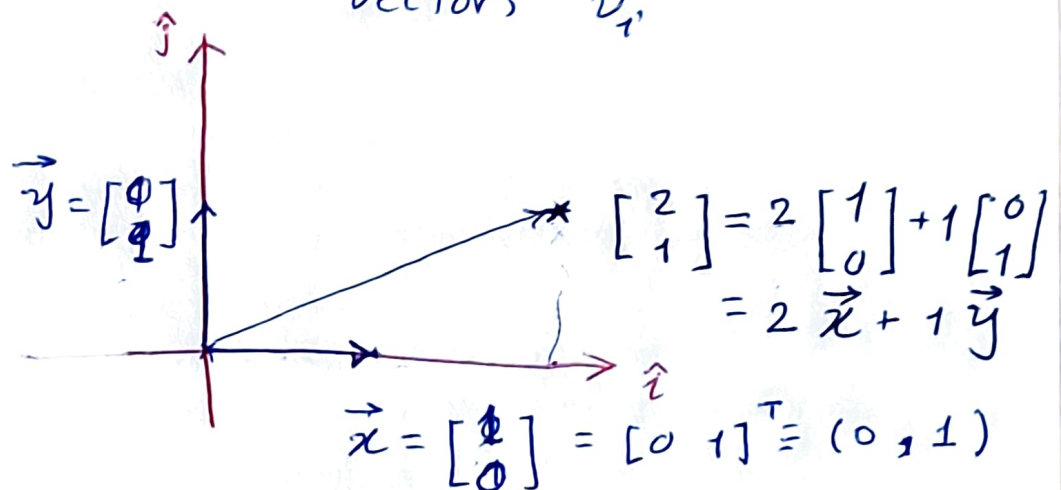 vectors v_i
ĵ
\vec{y} = [0 1]
[2 1] = 2 [1 0] + 1 [0 1]
= 2 \vec{x} + 1 \vec{y}
î
\vec{x} = [1 0] = [0 1]^T = (0, 1)